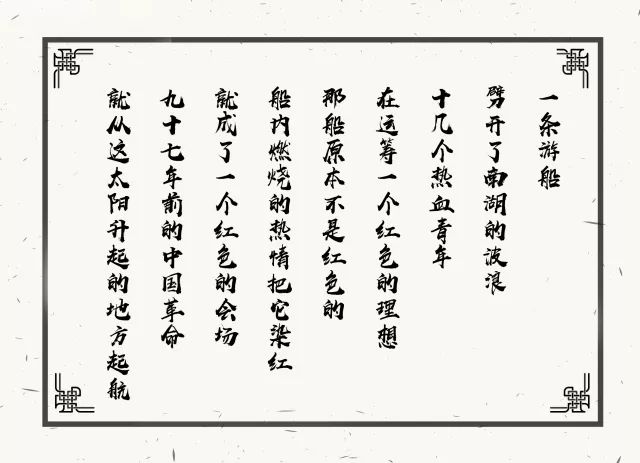 一条游船
劈开了南湖的波浪
十几个热血青年
在运筹一个红色的理想
那船原本不是红色的
船内燃烧的热情把它染红
就成了一个红色的会场
九十七年前的中国革命
就从这太阳升起的地方起航